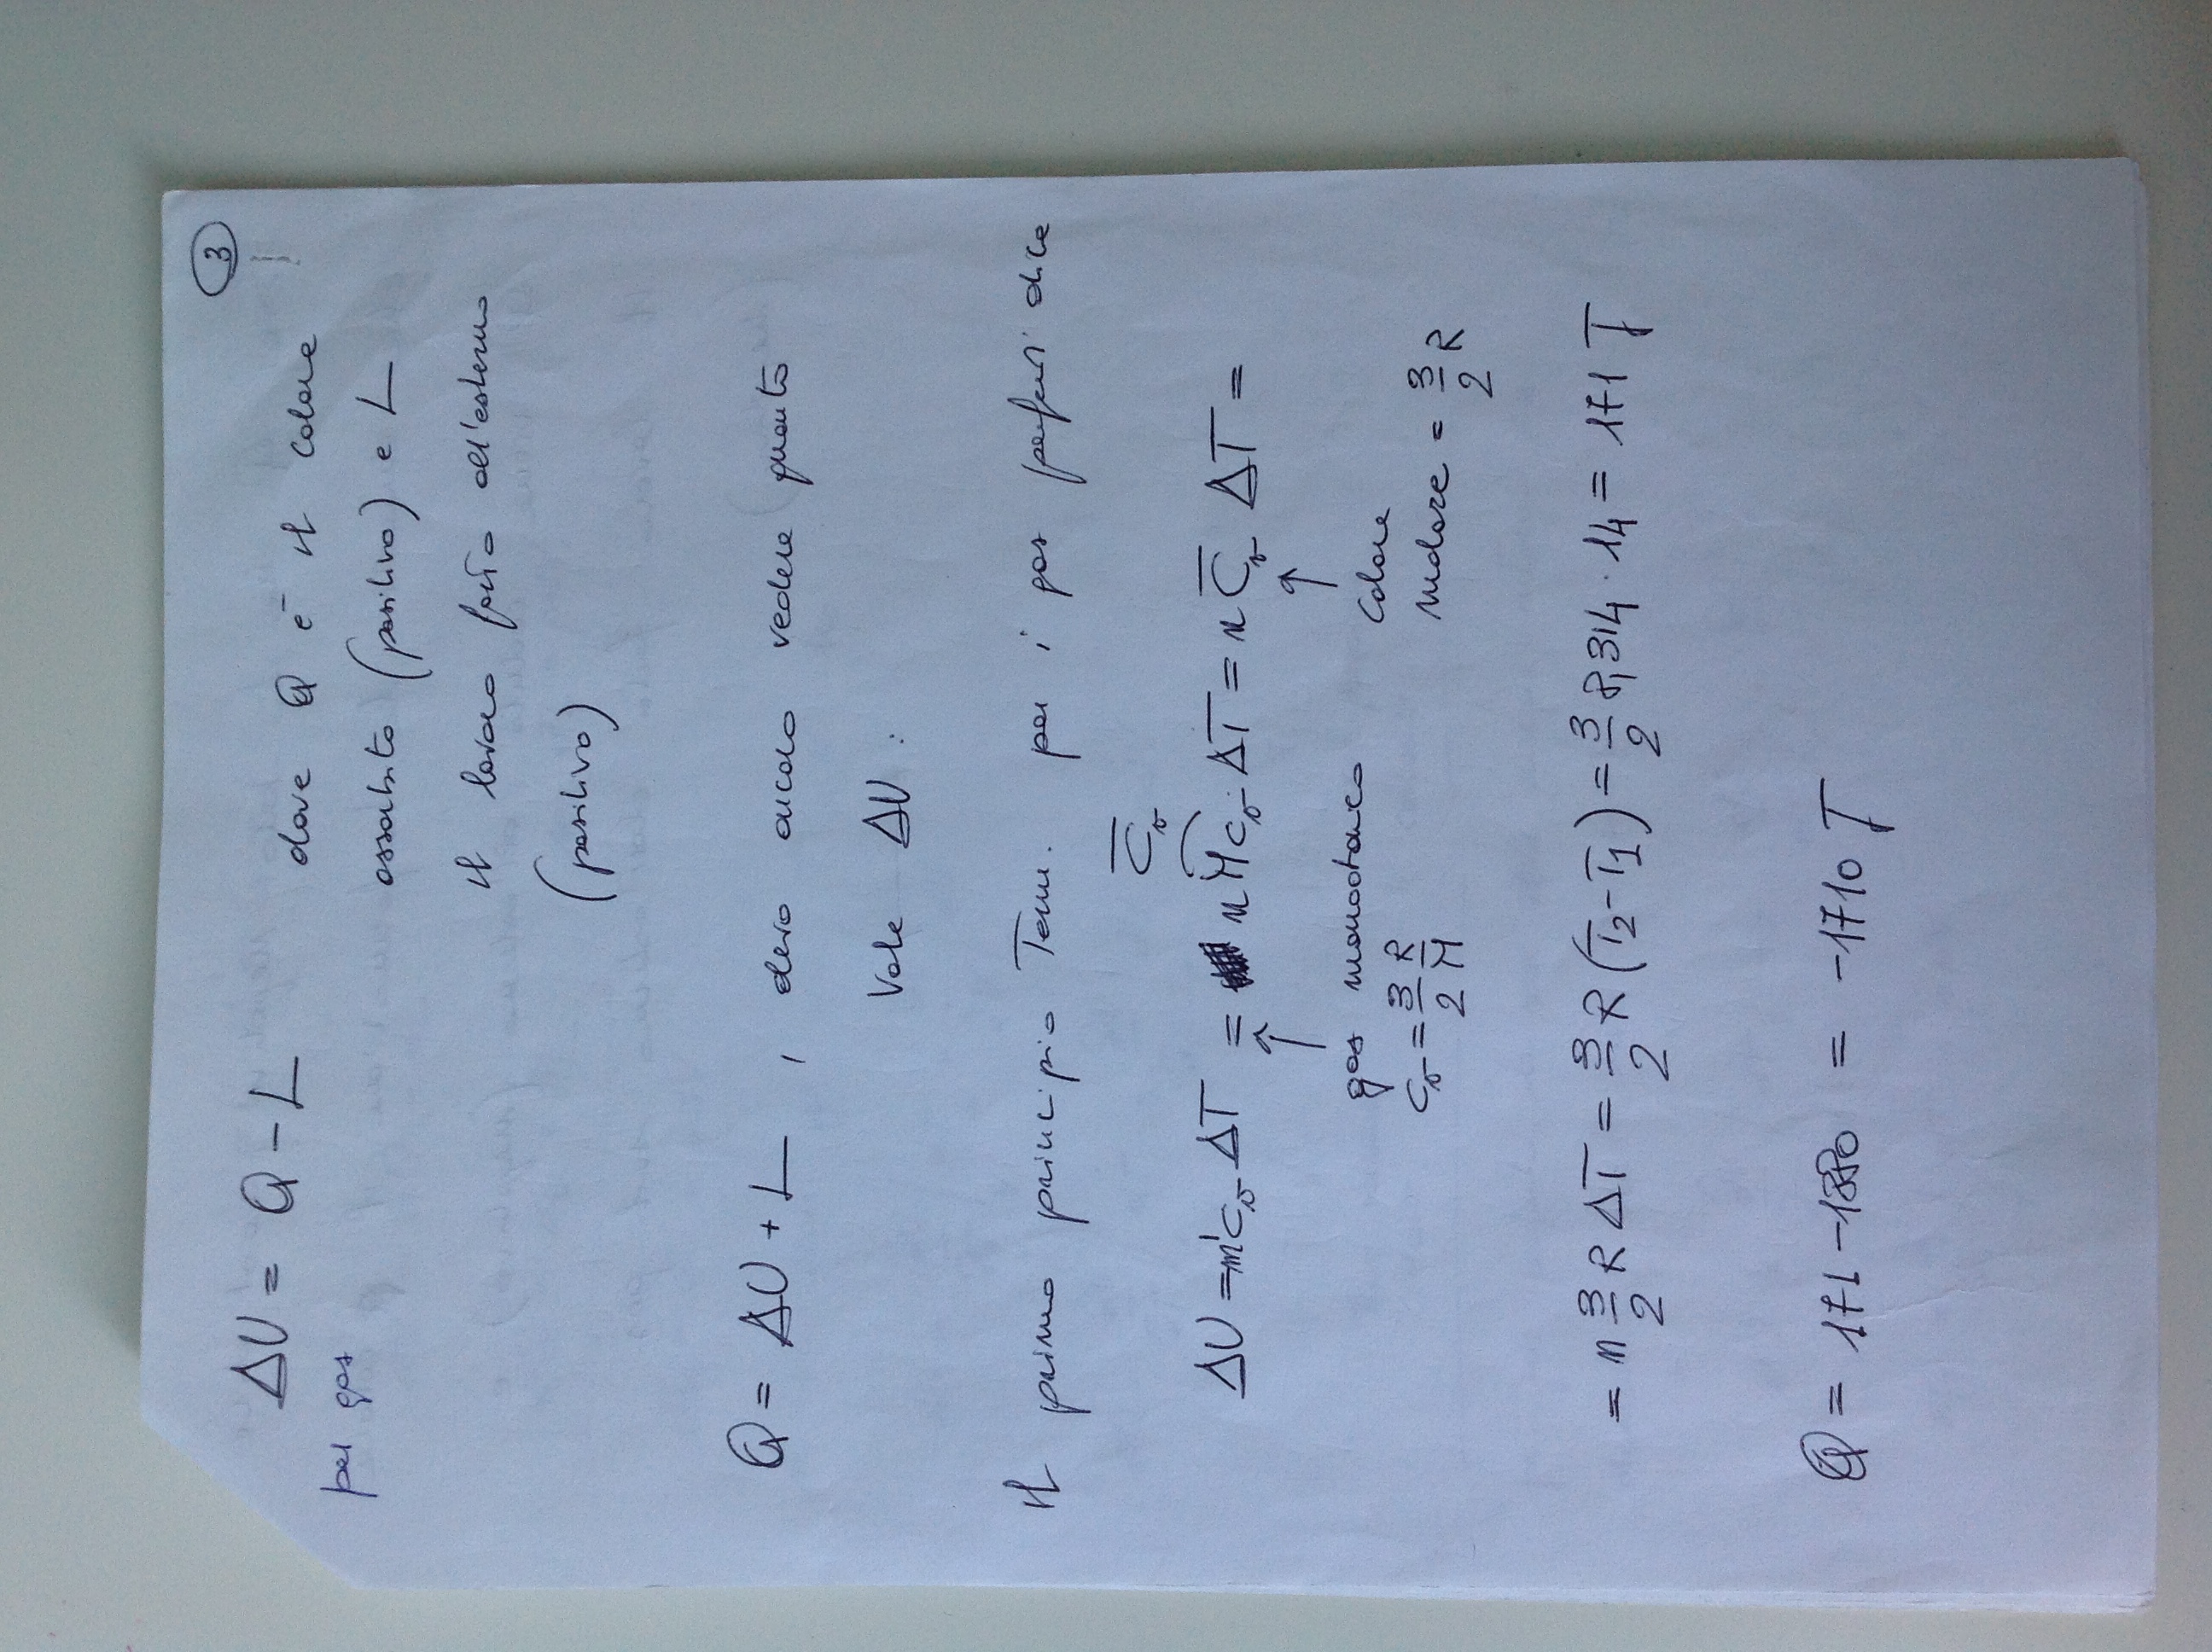 3
ΔU = Q - L
per gas
dove Q è il calore
assorbito (positivo) e L
il lavoro fatto all'esterno
(positivo)
Q = ΔU + L , devo ancora vedere quanto
vale ΔU :
Il primo principio Term. per i gas perfetti dice
C̅v
ΔU = m'cv ΔT = n M cv ΔT = n C̅v ΔT =
gas monoatomico
cv = 3/2 R/M
Calore
molare = 3/2 R
= n 3/2 R ΔT = 3/2 R (T2 - T1) = 3/2 8,314 · 14 = 171 J
Q = 171 - 1880 = -1710 J